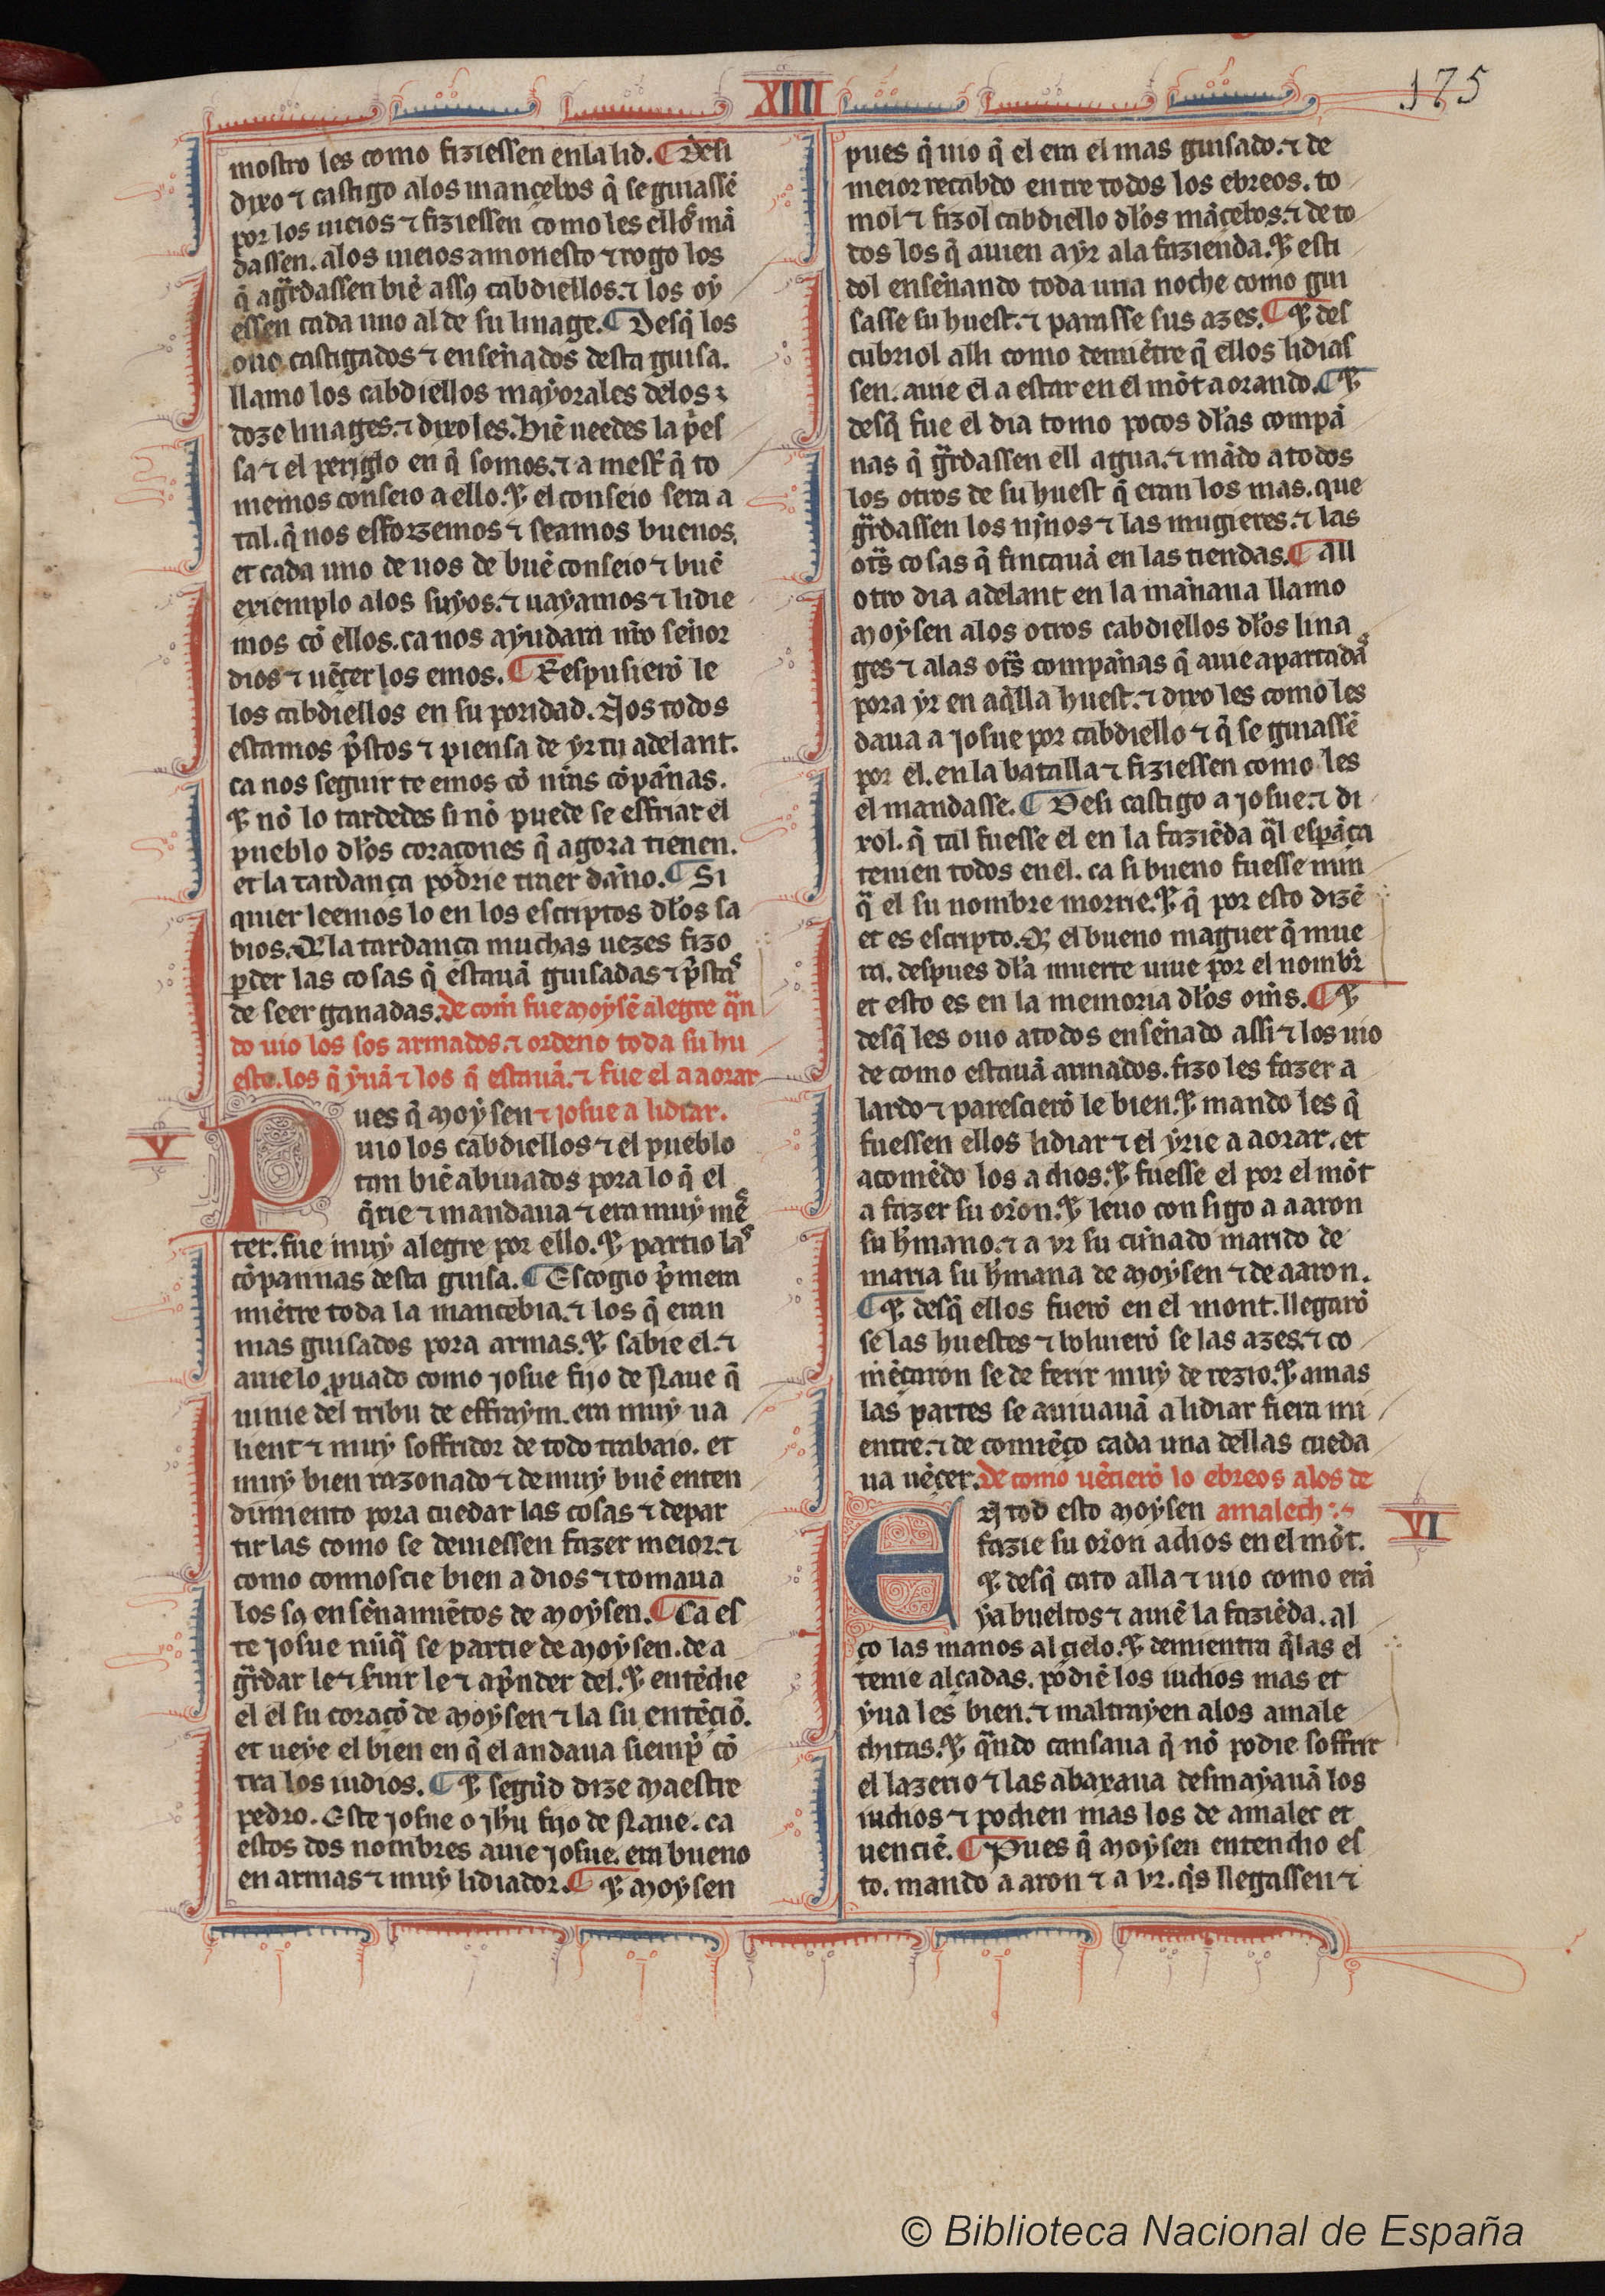 XIIII
175
mostro les como fiziessen enla lid. ¶ Desi
dixo ⁊ castigo alos mançebos q̃ se guiassẽ
por los uieios ⁊ fiziessen como les ellos mã
dassen. alos uieios amonesto ⁊ rogo los
q̃ agr̃dassen biẽ assꝯ cabdiellos. ⁊ los oẏ
essen cada uno al de su linage. ¶ Desq̃ los
ouo castigados ⁊ enseñados desta guisa.
llamo los cabdiellos maẏorales delos
doze linages. ⁊ dixo les. Biẽ ueedes la p̃es
sa ⁊ el periglo en q̃ somos. ⁊ a mest̃ q̃ to
memos conseio a ello. ⁊ el conseio sera a
tal. q̃ nos efforzemos ⁊ seamos buenos.
et cada uno de uos de buẽ conseio ⁊ buẽ
exiemplo alos suẏos. ⁊ uaẏamos ⁊ lidie
mos cõ ellos. ca nos aẏudara nr̃o señor
dios ⁊ uẽçer los emos. ¶ Respusierõ le
los cabdiellos en su poridad. Nos todos
estamos p̃stos ⁊ piensa de ẏr tu adelant.
ca nos seguir te emos cõ nr̃as cõpañas.
⁊ nõ lo tardedes si nõ puede se esfriar el
pueblo dłos coraçones q̃ agora tienen.
et la tardança podrie traer daño. ¶ Si
quier leemos lo en los escriptos dłos sa
bios. Q̃ la tardança muchas uezes fizo
ꝑder las cosas q̃ estauã guisadas ⁊ p̃stas
de seer ganadas. De com̃ fue moẏsẽ alegre qñ
do uio los sos armados. ⁊ ordeno toda su hu
este. los q̃ ẏuã ⁊ los q̃ estauã. ⁊ fue el a aorar
V
Pues q̃ moẏsen ⁊ josue a lidiar.
uio los cabdiellos ⁊ el pueblo
tan biẽ abiuados pora lo q̃ el
q̃rie ⁊ mandaua ⁊ era muẏ mẽs
ter. fue muẏ alegre por ello. ⁊ partio las
cõpannas desta guisa. ¶ Escogio p̃mera
miẽtre toda la mancebia. ⁊ los q̃ eran
mas guisados pora armas. ⁊ sabie el. ⁊
auielo ꝓuado como josue fijo de Naue q̃
uinie del tribu de effraẏm. era muẏ ua
lient ⁊ muẏ soffridor de todo trabaio. et
muẏ bien razonado ⁊ de muẏ buẽ enten
dimiento pora cuedar las cosas ⁊ depar
tir las como se deuiessen fazer meior. ⁊
como connoscie bien a dios ⁊ tomaua
los sꝯ enseñamiẽtos de moẏsen. ¶ Ca es
te josue nũq̃ se partie de moẏsen. de a
gr̃dar le ⁊ s̃uir le ⁊ ap̃nder del. ⁊ entẽdie
el el su coraçõ de moẏsen ⁊ la su entẽciõ.
et ueẏe el bien en q̃ el andaua siemp̃ cõ
tra los iudios. ¶ ⁊ segũd dize maestre
pedro. Este josue o jħu fijo de Naue. ca
estos dos nombres auie josue. era bueno
en armas ⁊ muẏ lidiador. ¶ ⁊ moẏsen
pues q̃ uio q̃ el era el mas guisado. ⁊ de
meior recabdo entre todos los ebreos. to
mol ⁊ fizol cabdiello dłos mãçebos. ⁊ de to
dos los q̃ auien a ẏr ala fazienda. ⁊ esti
dol enseñando toda una noche como gui
sasse su huest. ⁊ parasse sus azes. ¶ ⁊ des
cubriol alli como demiẽtre q̃ ellos lidias
sen. auie el a estar en el mõt aorando. ¶ ⁊
desq̃ fue el dia tomo pocos dłas compa
ñas q̃ gr̃dassen ell agua. ⁊ mãdo a todos
los otros de su huest q̃ eran los mas. que
gr̃dassen los niños ⁊ las mugieres. ⁊ las
otr̃s cosas q̃ fincauã en las tiendas. ¶ all
otro dia adelant en la mañana llamo
moẏsen alos otros cabdiellos dłos lina
ges ⁊ alas otr̃s compañas q̃ auie apartadas
pora ẏr en aq̃lla huest. ⁊ dixo les como les
daua a josue por cabdiello ⁊ q̃ se guiassẽ
por el. en la batalla ⁊ fiziessen como les
el mandasse. ¶ Desi castigo a josue. ⁊ di
xol. q̃ tal fuesse el en la faziẽda q̃l espãça
tenien todos en el. ca si bueno fuesse nun
q̃ el su nombre morrie. ⁊ q̃ por esto dizẽ
et es escripto. Q̃ el bueno maguer q̃ mue
ra. despues dła muerte uiue por el nombr̃
et esto es en la memoria dłos om̃s. ¶ ⁊
desq̃ les ouo a todos enseñado assi ⁊ los uio
de como estauã armados. fizo les fazer a
lardo ⁊ parescierõ le bien. ⁊ mando les q̃
fuessen ellos lidiar ⁊ el ẏrie a aorar. et
acomẽdo los a dios. ⁊ fuesse el por el mõt
a fazer su oŕon. ⁊ leuo consigo a aaron
su h̃mano. ⁊ a vr su cuñado marido de
maria su h̃mana de moẏsen ⁊ de aaron.
¶ ⁊ desq̃ ellos fuerõ en el mont. llegarõ
se las huestes ⁊ boluierõ se las azes. ⁊ co
mẽçaron se de ferir muẏ de rezio. ⁊ amas
las partes se auiuauã a lidiar fiera mi
entre. ⁊ de comiẽço cada una dellas cueda
ua uẽçer. De como uẽcierõ lo ebreos alos de
VI
EN tod esto moẏsen amalech
fazie su oŕon a dios en el mõt.
⁊ desq̃ cato alla ⁊ uio como erã
ẏa bueltos ⁊ auiẽ la faziẽda. al
ço las manos al çielo. ⁊ demientra q̃ las el
tenie alçadas. podiẽ los iudios mas et
ẏua les bien. ⁊ maltraẏen alos amale
chitas. ⁊ q̃ndo cansaua q̃ nõ podie soffrir
el lazerio ⁊ las abaxaua desmaẏauã los
iudios ⁊ podien mas los de amalec et
uenciẽ. ¶ Pues q̃ moẏsen entendio es
to. mando a aron ⁊ a vr. q̃s llegassen ⁊
© Biblioteca Nacional de España